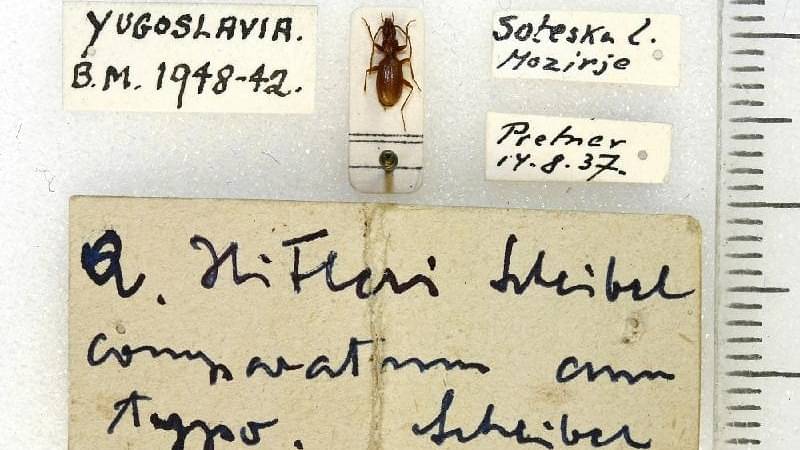 YUGOSLAVIA.
B.M. 1948-42.
Soteska l.
Mozirje
Pretner
14.8.37.
A. Hitleri Scheibel
comparatum cum
typo. Scheibel